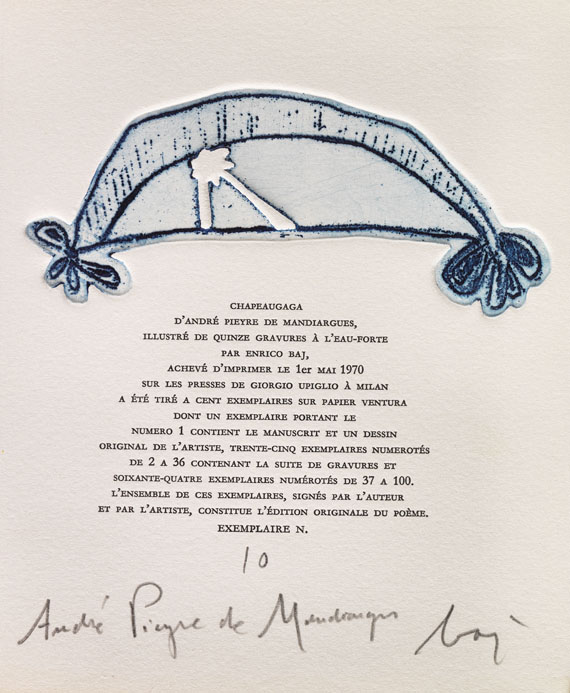 CHAPEAUGAGA
D'ANDRÉ PIEYRE DE MANDIARGUES,
ILLUSTRÉ DE QUINZE GRAVURES À L'EAU-FORTE
PAR ENRICO BAJ,
ACHEVÉ D'IMPRIMER LE 1er MAI 1970
SUR LES PRESSES DE GIORGIO UPIGLIO À MILAN
A ÉTÉ TIRÉ A CENT EXEMPLAIRES SUR PAPIER VENTURA
DONT UN EXEMPLAIRE PORTANT LE
NUMERO 1 CONTIENT LE MANUSCRIT ET UN DESSIN
ORIGINAL DE L'ARTISTE, TRENTE-CINQ EXEMPLAIRES NUMEROTÉS
DE 2 A 36 CONTENANT LA SUITE DE GRAVURES ET
SOIXANTE-QUATRE EXEMPLAIRES NUMÉROTÉS DE 37 A 100.
L'ENSEMBLE DE CES EXEMPLAIRES, SIGNÉS PAR L'AUTEUR
ET PAR L'ARTISTE, CONSTITUE L'ÉDITION ORIGINALE DU POÈME.
EXEMPLAIRE N.
10
André Pieyre de Mandiargues baj